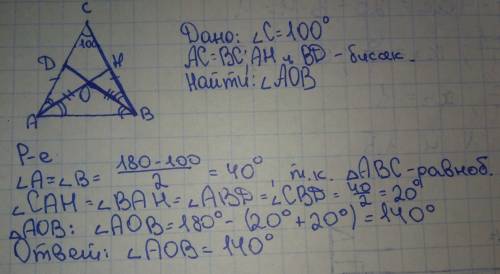 C
100
D
H
O
A
B
Дано: ∠C=100°
AC=BC; AH и BD - бисек.
Найти: ∠AOB
Р-е
∠A=∠B= (180-100)/2 = 40°, т.к. △ABC-равноб.
∠CAH=∠BAH=∠ABD=∠CBD= 40/2 = 20°
△AOB: ∠AOB=180°-(20°+20°)=140°
Ответ: ∠AOB=140°